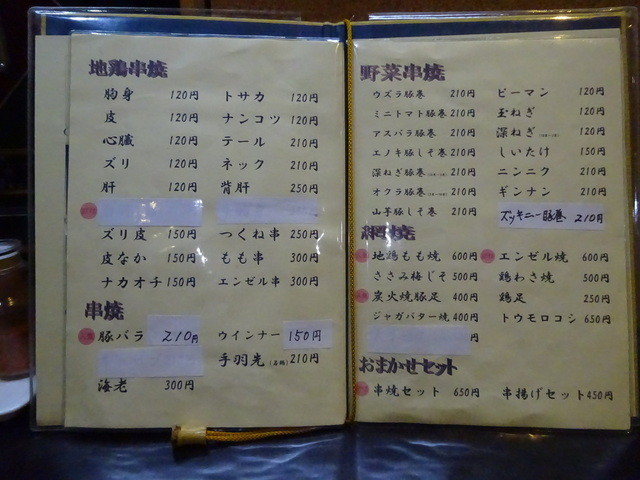 地鶏串焼
胸身 120円 トサカ 120円
皮 120円 ナンコツ 120円
心臓 120円 テール 210円
ズリ 120円 ネック 210円
肝 120円 背肝 250円
ズリ皮 150円 つくね串 250円
皮なか 150円 もも串 300円
ナカオチ 150円 エンゼル串 300円
串焼
豚バラ 210円 ウインナー 150円
手羽先 210円
海老 300円
野菜串焼
ウズラ豚巻 210円 ピーマン 120円
ミニトマト豚巻 210円 玉ねぎ 120円
アスパラ豚巻 210円 深ねぎ 120円
エノキ豚しそ巻 210円 しいたけ 150円
深ねぎ豚巻 210円 ニンニク 210円
オクラ豚巻 210円 ギンナン 210円
山芋豚しそ巻 210円 ズッキーニ豚巻 210円
地鶏もも焼 600円 エンゼル焼 600円
ささみ梅じそ 500円 鶏わさ焼 500円
炭火焼豚足 400円 鶏足 250円
ジャガバター焼 400円 トウモロコシ 650円
円
おまかせセット
串焼セット 650円 串揚げセット 450円